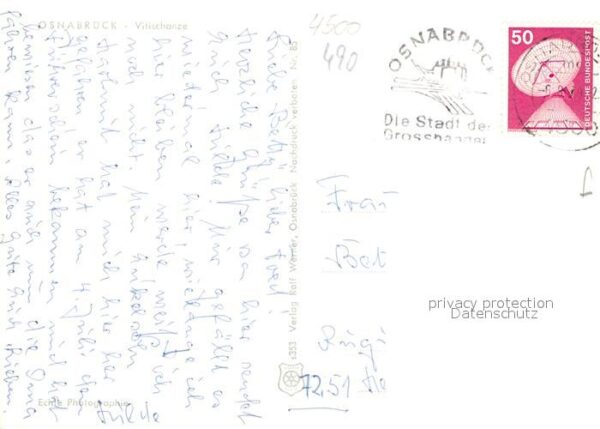 OSNABRÜCK - Vitischanze
4500
490
OSNABRÜCK
Die Stadt der
Grosshandel
50
DEUTSCHE BUNDESPOST
Liebe Betty, lieber Fred!
Herzliche Grüße von hier sendet
Euch Hilde. Mir gefällt es
wieder mal hier, wie lange ich
hier bleiben werde weiß ich
noch nicht. Mein Enkelsohn
hat mich hier her
gefahren er hat am 4. Juli den
Führerschein bekommen und hat
bewiesen das er auch nun die Oma
fahren kann. Alles gute Euch Lieben.
Hilde
Frau
Bet
7251
4353 Verlag Ralf Werner, Osnabrück Nachdruck verboten Nr. 85
Echte Photographie
privacy protection
Datenschutz